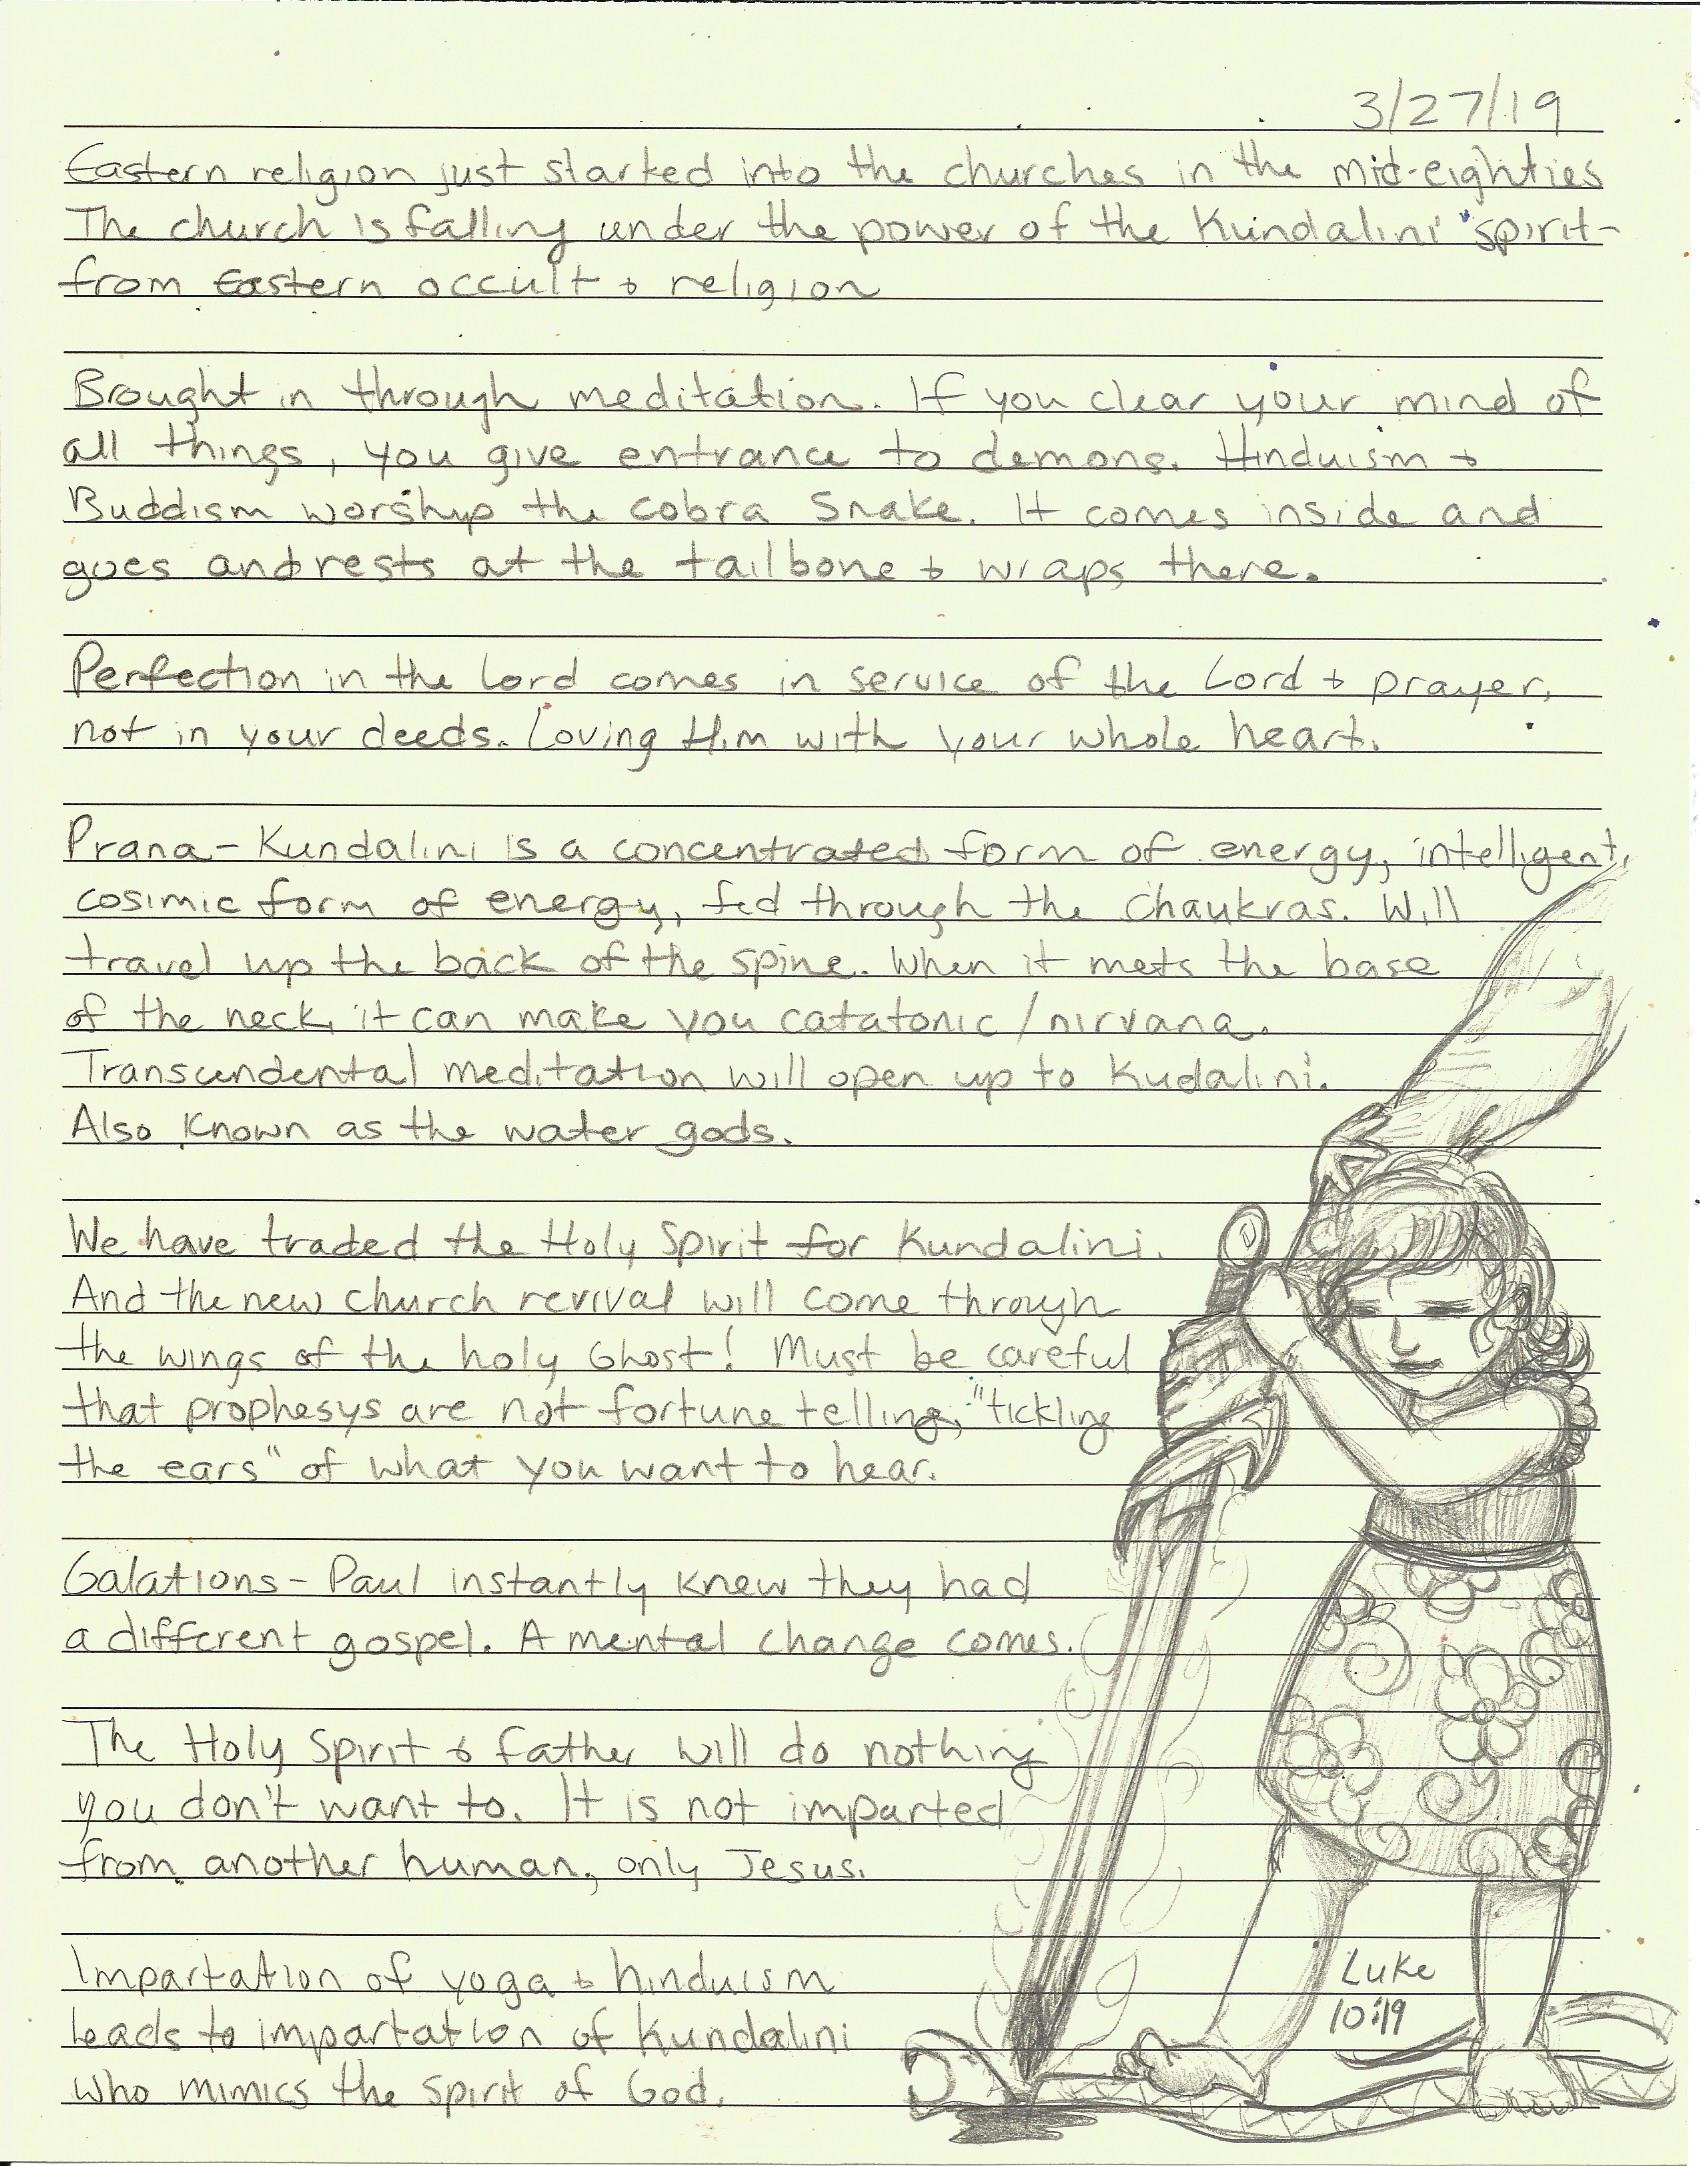 3/27/19
Eastern religion just started into the churches in the mid-eighties
The church is falling under the power of the Kundalini spirit-
from Eastern occult & religion
Brought in through meditation. If you clear your mind of
all things, you give entrance to demons. Hinduism &
Buddism worship the cobra snake. It comes inside and
goes and rests at the tailbone & wraps there.
Perfection in the Lord comes in service of the Lord & prayer,
not in your deeds. Loving Him with your whole heart.
Prana - Kundalini is a concentrated form of energy, intelligent,
cosimic form of energy, fed through the Chaukras. Will
travel up the back of the spine. When it mets the base
of the neck, it can make you catatonic / nirvana.
Transcendental meditation will open up to Kudalini.
Also known as the water gods.
We have traded the Holy Spirit for Kundalini.
And the new church revival will come through
the wings of the holy Ghost! Must be careful
that prophesys are not fortune telling, "tickling
the ears" of what you want to hear.
Galations - Paul instantly knew they had
a different gospel. A mental change comes.
The Holy Spirit & father will do nothing
you don't want to. It is not imparted
from another human, only Jesus.
Impartation of yoga & hinduism
leads to impartation of Kundalini
who mimics the spirit of God.
Luke
10:19